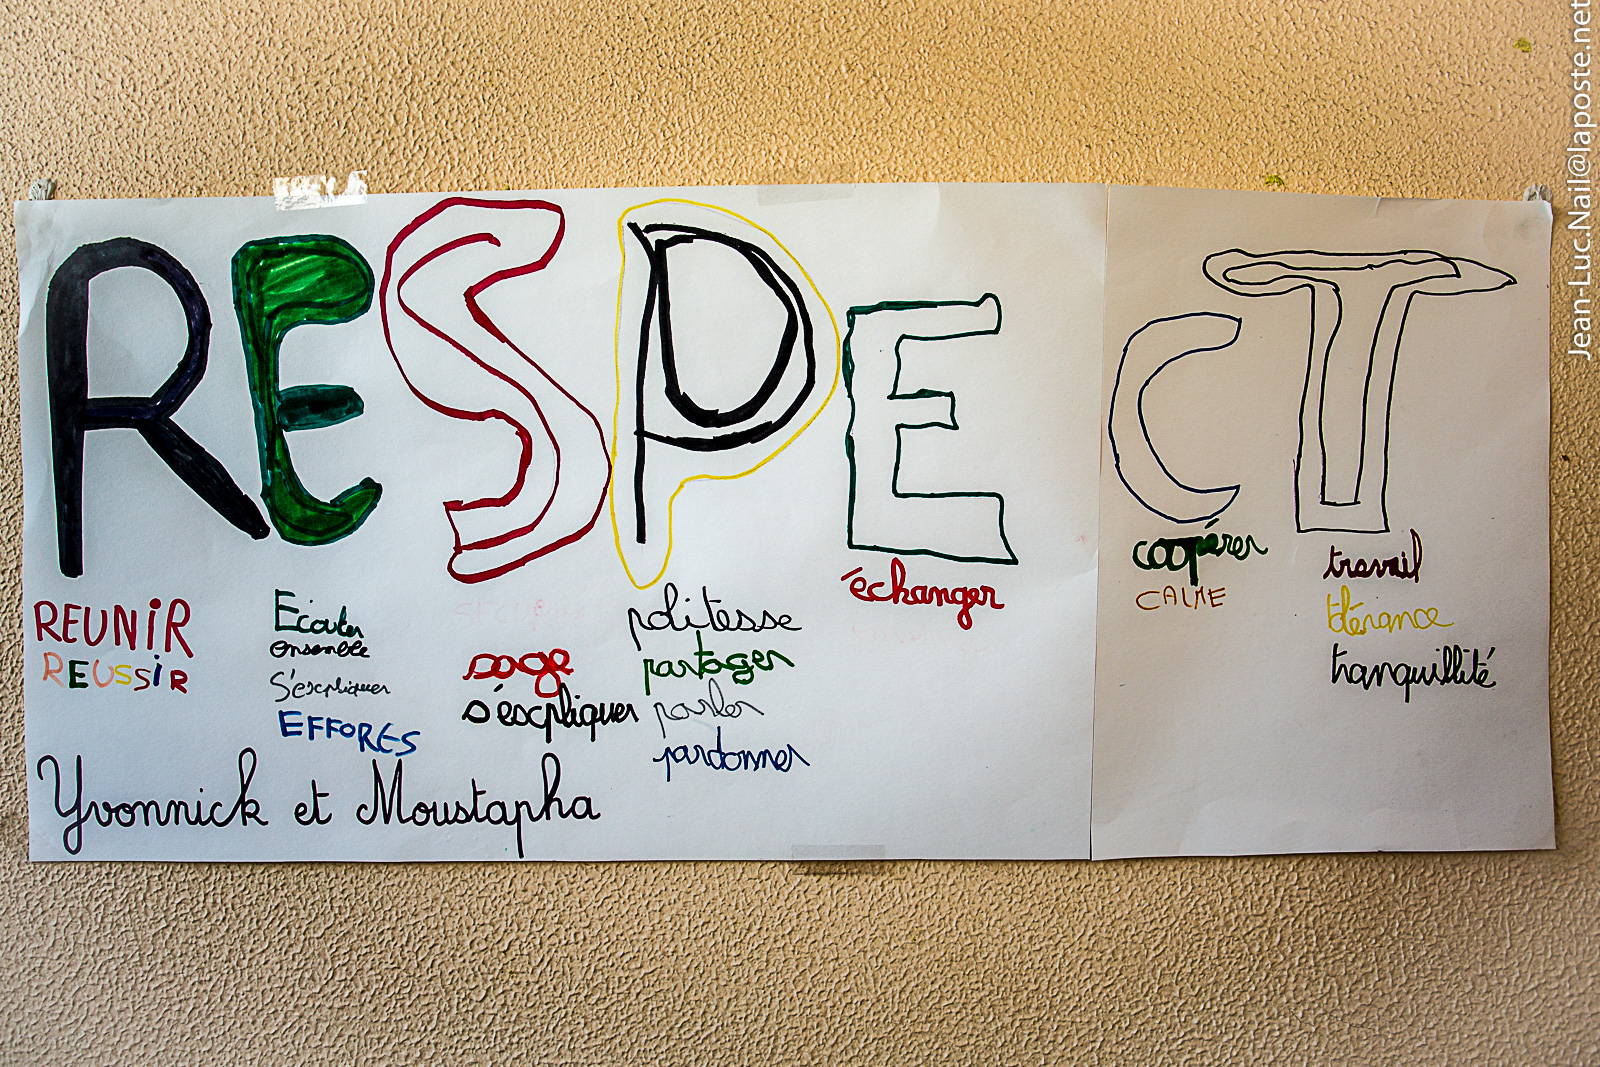 RESPECT
REUNIR
REUSSIR
Ecouter
ensemble
S'expliquer
EFFORES
sage
s'expliquer
politesse
partager
parler
pardonner
échanger
coopérer
CALME
travail
tolérance
tranquillité
Yvonnick et Moustapha
Jean-Luc.Nail@laposte.net